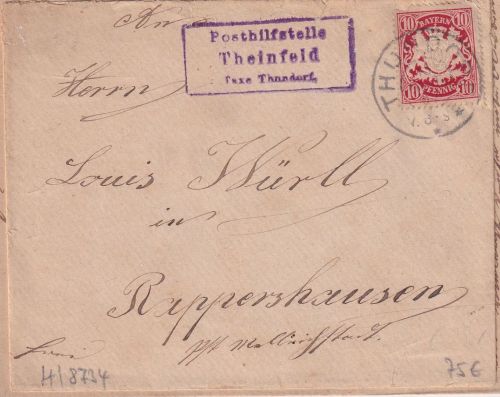 An
Posthilfstelle
Theinfeld
Taxe Thundorf.
10 BAYERN 10
10 PFENNIG 10
THU
Herrn
Louis Würll
in
Rappershausen
Pst Mellrichstadt.
frei
H/8734
75€